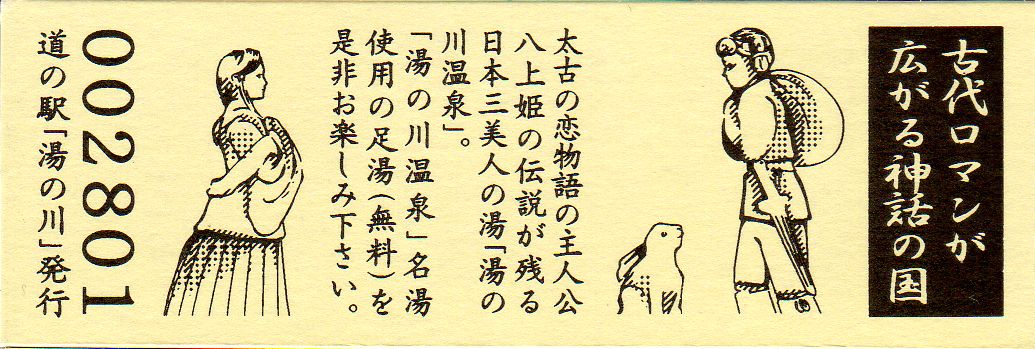 古代ロマンが
広がる神話の国
太古の恋物語の主人公
八上姫の伝説が残る
日本三美人の湯「湯の
川温泉」。
「湯の川温泉」名湯
使用の足湯(無料)を
是非お楽しみ下さい。
002801
道の駅「湯の川」発行